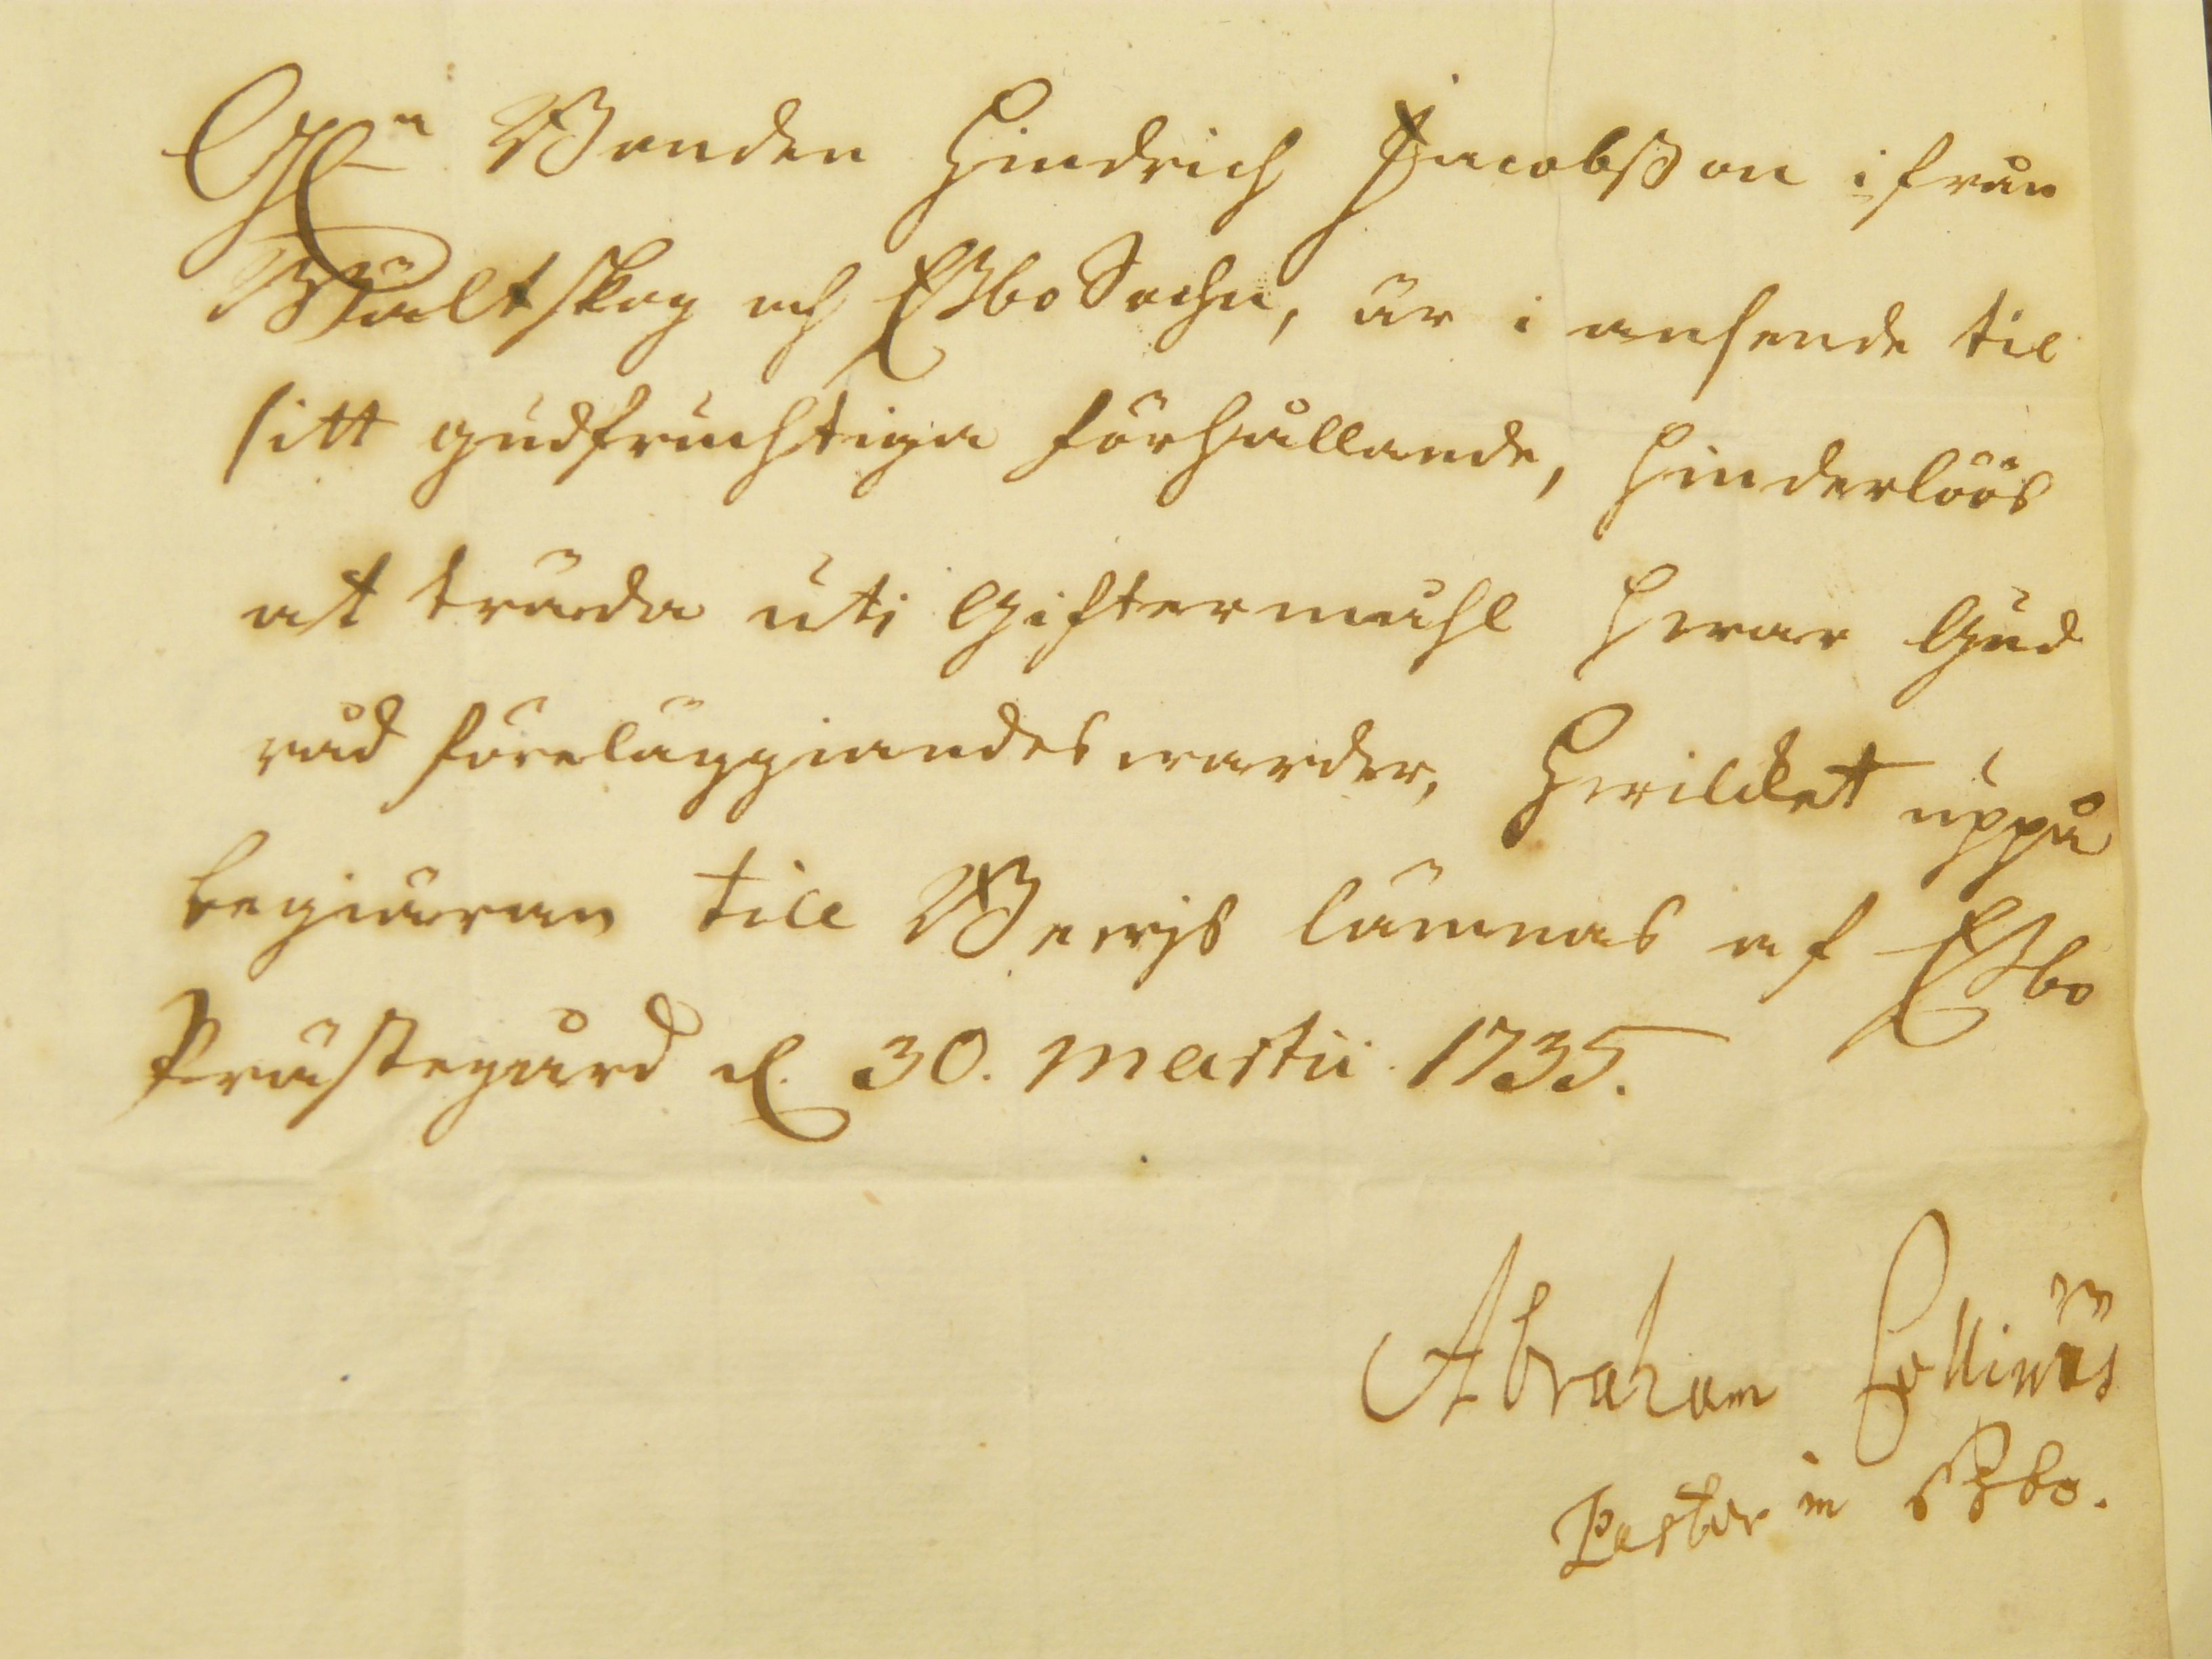 Gl.n Bonden Hindrich Jacobßon ifrån
Bältskog och Eßbo Sochn, är i anseende til
sitt gudfruchtiga förhållande, hinderlöös
at träda uti Giftermåhl hwar Gud
råd föreläggiandes warder, Hwilcket uppå
begiäran till Bewjs lämnas af Eßbo
Prästegård d. 30. Martii 1735.
Abraham Collinus
Pastor in Esbo.